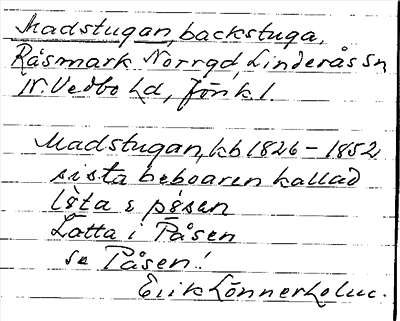 Madstugan, backstuga,
Råsmark Norrgd, Linderås sn
N. Vedbo hd, Jönk l.
Madstugan, kb 1826 - 1852
sista beboaren kallad
Låtta i Påsen
se Påsen!
Erik Lönnerholm.